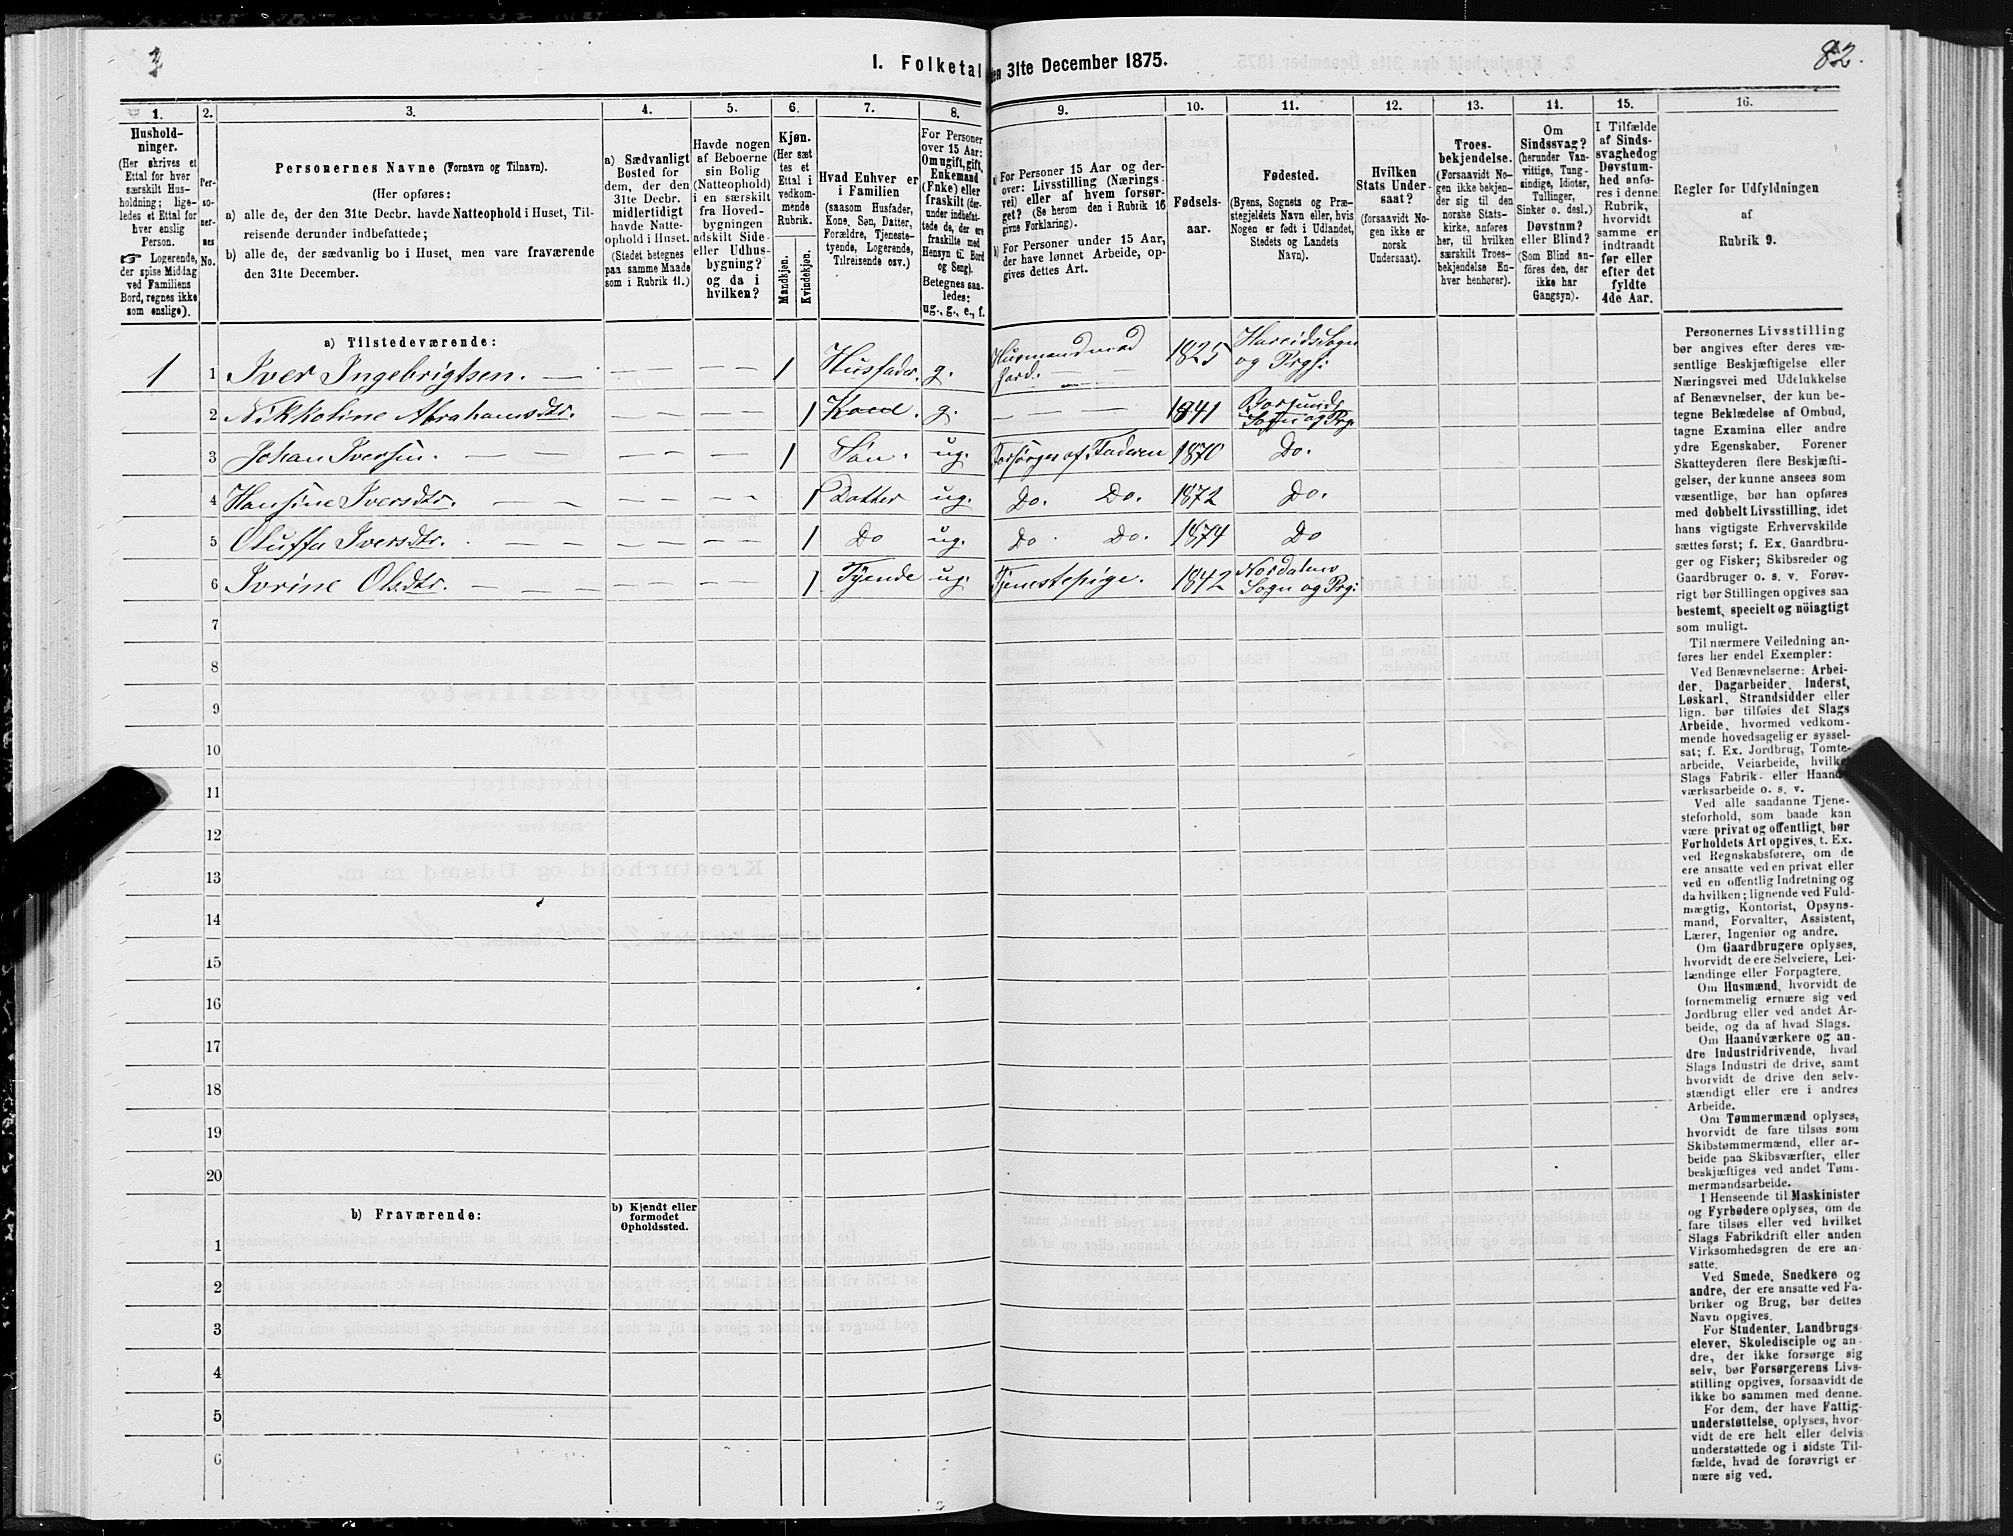 3
82.
1. Folketal
den 31te December 1875.
1.
Hushold-
ninger.
(Her skrives et
Ettal for hver
særskilt Hus-
holdning; lige-
ledes et Ettal for
hver enslig
Person.
☞ Logerende,
der spise Middag
ved Familiens
Bord, regnes ikke
som enslige).
2.
Per-
so-
ner-
nes
No.
3.
Personernes Navne (Fornavn og Tilnavn).
(Her opføres:
a) alle de, der den 31te Decbr. havde Natteophold i Huset, Til-
reisende derunder indbefattede;
b) alle de, der sædvanlig bo i Huset, men vare fraværende
den 31te December.
4.
a) Sædvanligt
Bosted for
dem, der den
31te Decbr.
midlertidigt
havde Natte-
ophold i Huset.
(Stedet betegnes
paa samme Maade
som i Rubrik 11.)
5.
Havde nogen
af Beboerne
sin Bolig
(Natteophold)
i en særskilt
fra Hoved-
bygningen
adskilt Side-
eller Udhus-
bygning?
og da i
hvilken?
6.
Kjøn.
(Her sæt-
tes et
Ettal i
vedkom-
mende
Rubrik.
Mandkjøn.
Kvindekjøn.
7.
Hvad Enhver er
i Familien
(saasom Husfader,
Kone, Søn, Datter,
Forældre, Tjeneste-
tyende, Logerende,
Tilreisende osv.)
8.
For Personer
over 15 Aar:
Om ugift, gift,
Enkemand
(Enke) eller
fraskilt (der-
under indbefat-
tede de, der ere
fraskilte med
Hensyn til Bord
og Seng).
Betegnes saa-
ledes:
ug., g., e., f.
9.
a) For Personer 15 Aar og der-
over: Livsstilling (Nærings-
vei) eller af hvem forsør-
get? (Se herom den i Rubrik 16
givne Forklaring).
b) For Personer under 15 Aar,
der have lønnet Arbeide, op-
gives dettes Art.
10.
Fødsels-
aar.
11.
Fødested.
(Byens, Sognets og Præ-
stegjeldets Navn eller, hvis
Nogen er født i Udlandet,
Stedets og Landets
Navn).
12.
Hvilken
Stats Under-
saat?
(forsaavidt No-
gen ikke er
norsk
Undersaat).
13.
Troes-
bekjendelse.
(Forsaavidt No-
gen ikke bekjen-
der sig til den
norske Stats-
kirke, anføres
her, til hvilken
særskilt Troes-
bekjendelse En-
hver henhører).
14.
Om
Sindssvag?
(herunder Van-
vittige, Tung-
sindige, Idioter,
Tullinger,
Sinker o. desl.)
Døvstum?
eller Blind?
(Som Blind an-
føres den, der
ikke har
Gangsyn).
15.
I Tilfælde
af Sinds-
svaghed og
Døvstum-
hed anfø-
res i denne
Rubrik,
hvorvidt
samme er
indtraadt
før eller
efter det
fyldte
4de Aar.
16.
Regler for Udfyldningen
af
Rubrik 9.
a) Tilstedeværende:
1 1 Iver Ingebrigtsen. — — — — — 1 Husfader. g. Husmand med Jord. — — 1825 Hareids Sogn og Prgj:
2 Nikkoline Abrahamsdtr. — — — — 1 Kone. g. — — — 1841 Borgunds Sogn og Prg:
3 Johan Iversen. — — — — — 1 Søn. ug. Forsørges af Faderen 1870 Do.
4 Hansine Iversdtr. — — — — — — 1 Datter ug. Do. Do. 1872 Do.
5 Oluffa Iversdtr. — — — — — — 1 Do ug. Do. Do. 1874 Do
6 Ivrine Olsdtr. — — — — — — 1 Tyende ug. Tjenestepige. 1842 Nordalens Sogn og Prg:
7
8
9
10
11
12
13
14
15
16
17
18
19
20
b) Fraværende:
b) Kjendt eller
formodet
Opholdssted.
1
2
3
4
5
6
Personernes Livsstilling
bør angives efter deres væ-
sentlige Beskjæftigelse eller
Næringsvei med Udelukkelse
af Benævnelser, der kun be-
tegne Beklædelse af Ombud,
tagne Examina eller andre
ydre Egenskaber. Forener
Skatteyderen flere Beskjæfti-
gelser, der kunne ansees som
væsentlige, bør han opføres
med dobbelt Livsstilling, idet
hans vigtigste Erhvervskilde
sættes først; f. Ex. Gaardbru-
ger og Fisker; Skibsreder og
Gaardbruger o. s. v. Forøv-
rigt bør Stillingen opgives saa
bestemt, specielt og nöiagtigt
som muligt.
Til nærmere Veiledning an-
føres her endel Exempler:
Ved Benævnelserne: Arbei-
der, Dagarbeider, Inderst,
Løskarl, Strandsidder eller
lign. bør tilføies det Slags
Arbeide, hvormed vedkom-
mende hovedsagelig er syssel-
sat; f. Ex. Jordbrug, Tomte-
arbeide, Veiarbeide, hvilket
Slags Fabrik- eller Haand-
værksarbeide o. s. v.
Ved alle saadanne Tjene-
steforhold, som baade kan
være privat og offentligt, bør
Forholdets Art opgives, t. Ex.
ved Regnskabsførere, om de
ere ansatte ved en privat eller
ved en offentlig Indretning og
da hvilken; lignende ved Fuld-
mægtig, Kontorist, Opsyns-
mand, Forvalter, Assistent,
Lærer, Ingeniør og andre.
Om Gaardbrugere oplyses,
hvorvidt de ere Selveiere, Lei-
lændinge eller Forpagtere.
Om Husmænd, hvorvidt de
fornemmelig ernære sig ved
Jordbrug eller ved andet Ar-
beide, og da af hvad Slags.
Om Haandværkere og an-
dre Industridrivende, hvad
Slags Industri de drive, samt
hvorvidt de drive den selv-
stændigt eller ere i andres
Arbeide.
Om Tømmermænd oplyses,
hvorvidt de fare tilsøs som
Skibstømmermænd, eller ar-
beide paa Skibsværfter, eller
beskjæftiges ved andet Tøm-
mermandsarbeide.
I Henseende til Maskinister
og Fyrbødere oplyses, om de
fare tilsøs eller ved hvilket
Slags Fabrikdrift eller anden
Virksomhedsgren de ere an-
satte.
Ved Smede, Snedkere og
andre, der ere ansatte ved Fa-
briker og Brug, bør dettes
Navn opgives.
For Studenter, Landbrugs-
elever, Skoledisciple og an-
dre, der ikke forsørge sig
selv, bør Forsørgerens Livs-
stilling opgives, forsaavidt de
ikke bo sammen med denne.
For dem, der have Fattig-
understøttelse, oplyses, hvor-
vidt de ere helt eller delvis
understøttede og i sidste Til-
fælde, hvad de forøvrigt er-
nære sig ved.